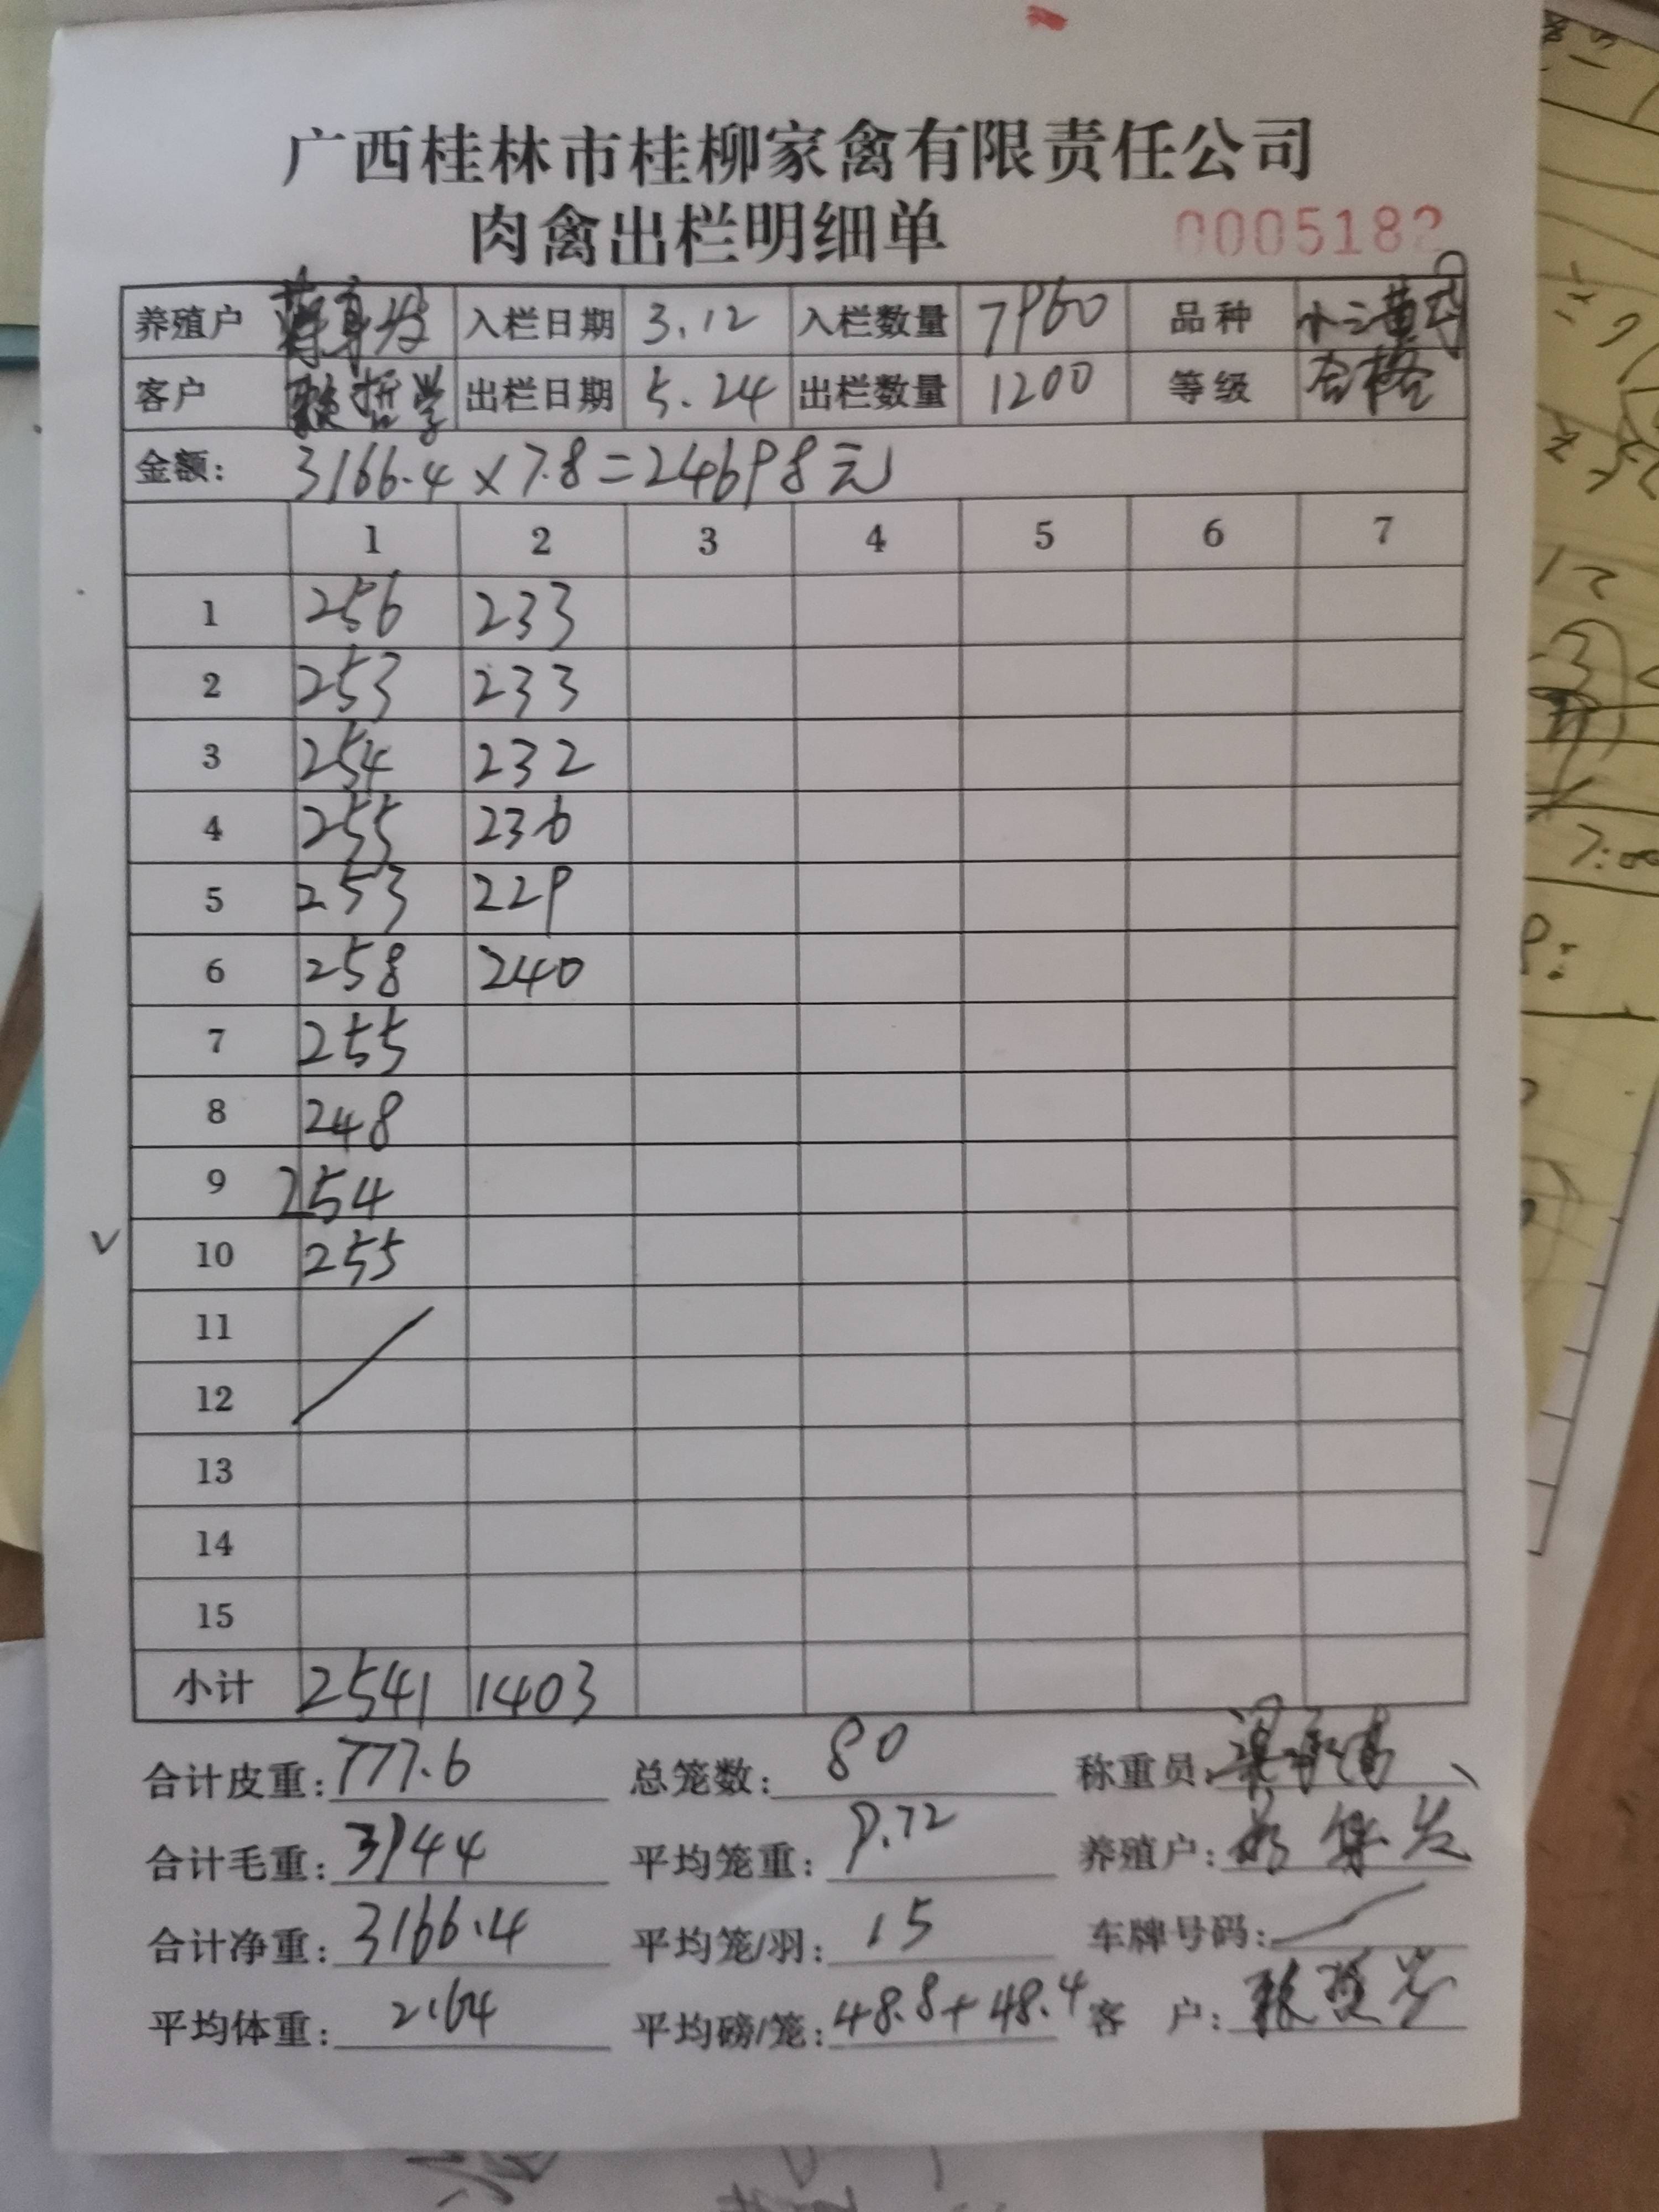 广西桂林市桂柳家禽有限责任公司
肉禽出栏明细单 0005182
养殖户 入栏日期 3.12 入栏数量 7960 品种 小三黄
客户 哲学 出栏日期 5.24 出栏数量 1200 等级 合格
金额: 3166.4×7.8=24698元
1 2 3 4 5 6 7
1 256 233
2 253 233
3 254 232
4 255 236
5 253 229
6 258 240
7 255
8 248
9 254
10 255
11
12
13
14
15
小计 2541 1403
合计皮重: 777.6 总笼数: 80 称重员:
合计毛重: 3944 平均笼重: 9.72 养殖户:
合计净重: 3166.4 平均笼/羽: 15 车牌号码:
平均体重: 2.64 平均磅/笼: 48.8+48.4 客 户:
7:00